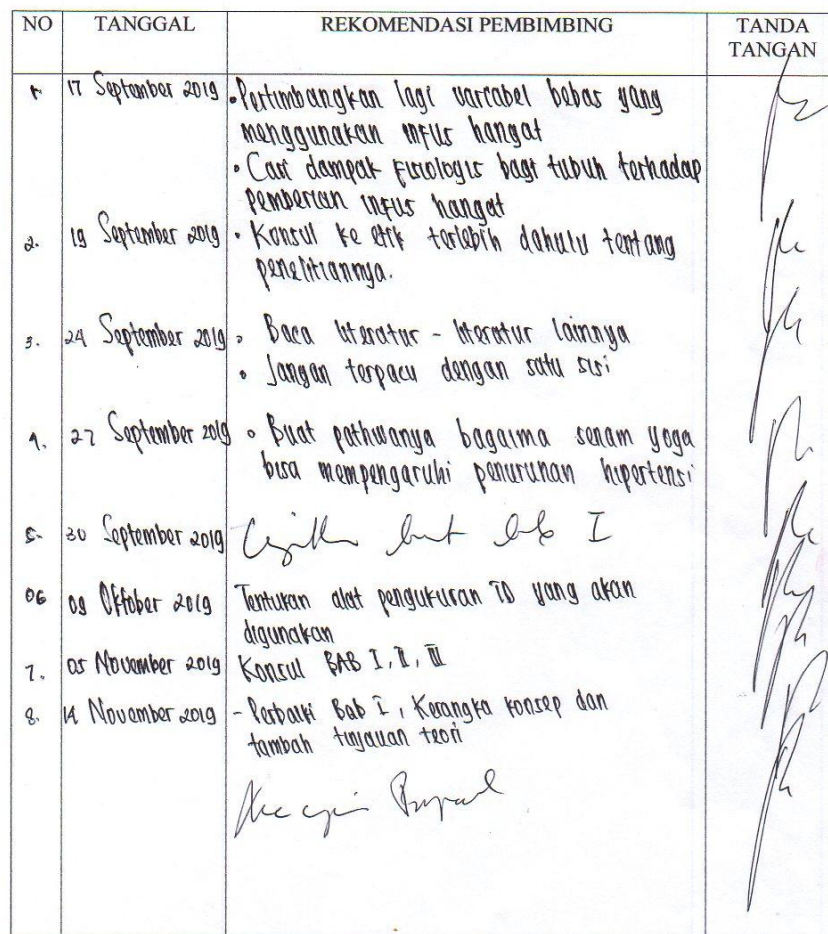 NO TANGGAL REKOMENDASI PEMBIMBING TANDA TANGAN
1. 17 September 2019 • Pertimbangkan lagi variabel bebas yang
menggunakan infus hangat
• Cari dampak fisiologis bagi tubuh terhadap
pemberian infus hangat
2. 19 September 2019 • Konsul ke etik terlebih dahulu tentang
penelitiannya.
3. 24 September 2019 • Baca literatur - literatur lainnya
• Jangan terpacu dengan satu sisi
4. 27 September 2019 • Buat pathwanya bagaima senam yoga
bisa mempengaruhi penurunan hipertensi
5. 30 September 2019 I
06 09 Oktober 2019 Tentukan alat pengukuran TD yang akan
digunakan
7. 05 November 2019 Konsul BAB I, II, III
8. 14 November 2019 - Perbaiki Bab I, Kerangka konsep dan
tambah tinjauan teori